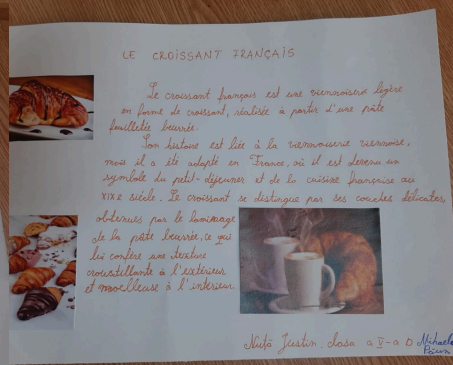 LE CROISSANT FRANÇAIS
Le croissant français est une viennoiserie légère
en forme de croissant, réalisée à partir d'une pâte
feuilletée beurrée.
Son histoire est liée à la viennoiserie viennoise,
mais il a été adapté en France, où il est devenu un
symbole du petit-déjeuner et de la cuisine française au
XIXe siècle. Le croissant se distingue par ses couches délicates
obtenues par le laminage
de la pâte beurrée, ce qui
lui confère une texture
croustillante à l'extérieur
et moelleuse à l'intérieur
Nuță Justin, clasa a V-a D
Mihaela